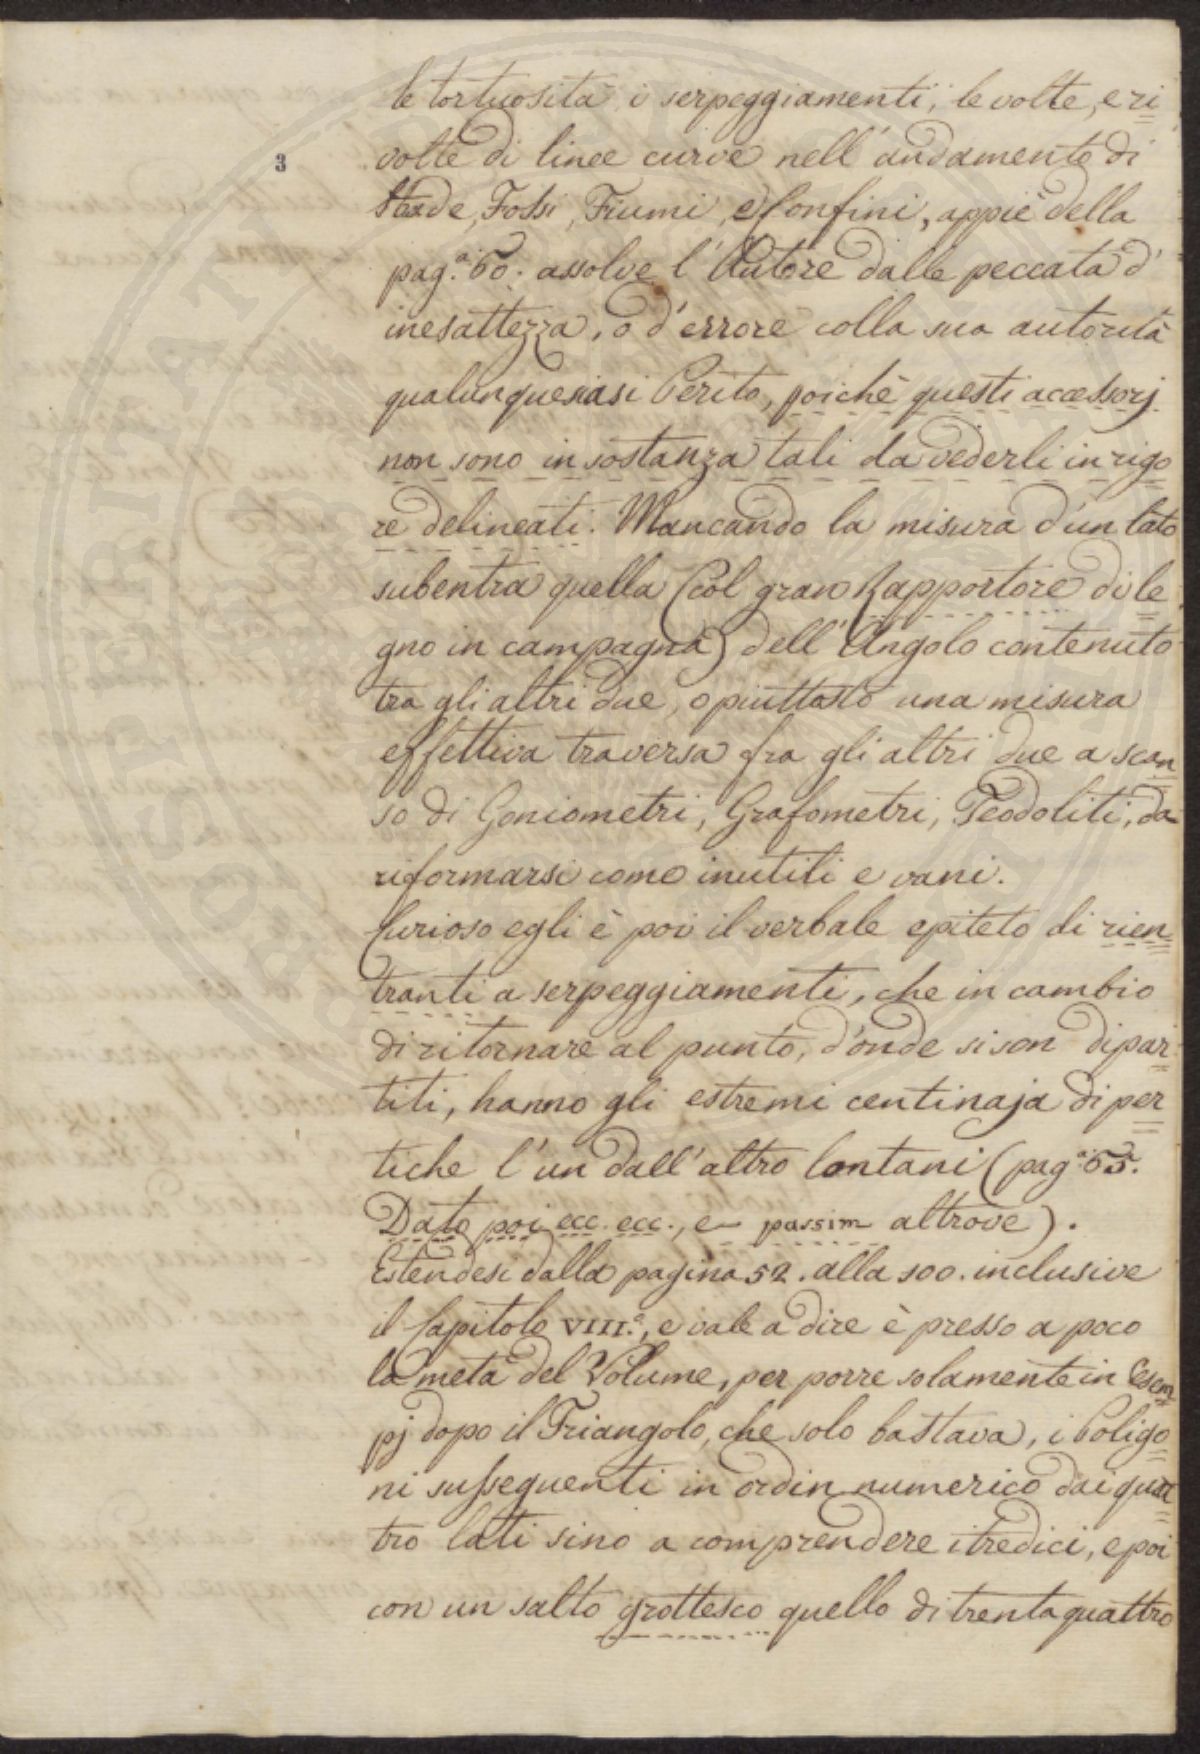 le tortuosità i serpeggiamenti, le volte, e ri
3
volte di linee curve nell'andamento di
Strade, Fossi, Fiumi, e Confini, appiè della
pag.ª 60. assolve l'Autore dalle peccata d'
inesattezza, o d'errore colla sua autorità
qualunquesiasi Perito, poichè questi accessorj
non sono in sostanza tali da vederli in rigo
re delineati. Mancando la misura d'un lato
subentra quella (col gran Rapportore di le
gno in campagna) dell'Angolo contenuto
tra gli altri due, o piuttosto una misura
effettiva traversa fra gli altri due a scan
so di Goniometri, Grafometri, Teodoliti, da
riformarsi come inutili e vani.
Curioso egli è poi il verbale epiteto di rien
tranti a serpeggiamenti, che in cambio
di ritornare al punto, d'onde si son dipar
titi, hanno gli estremi centinaja di per
tiche l'un dall'altro lontani (pag.ª 65.
Dato poi ecc. ecc., e passim altrove).
Estendesi dalla pagina 52. alla 100. inclusive
il Capitolo VIII.º, e vale a dire è presso a poco
la metà del Volume, per porre solamente in Esem
pj dopo il Triangolo, che solo bastava, i Poligo
ni susseguenti in ordin numerico dai quat
tro lati sino a comprendere i tredici, e poi
con un salto grottesco quello di trentaquattro